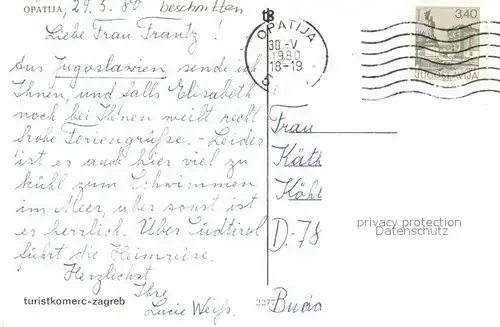 OPATIJA, 29.5.80 beschnitten
Liebe Frau Frantz!
Aus Jugoslawien sende ich
Ihnen, und falls Elisabeth
noch bei Ihnen weilt recht
frohe Feriengrüße. - Leider
ist es auch hier viel zu
kühl zum Schwimmen
im Meer, aber sonst ist
es herrlich. Über Südtirol
führt die Heimreise.
Herzlichst
Ihre
Lucie Weiß.
turistkomerc-zagreb
OPATIJA
30.-V
1980
18-19
5
3,40
JUGOSLAVIJA
Frau
Käth
Köhl
D-78
privacy protection
Datenschutz